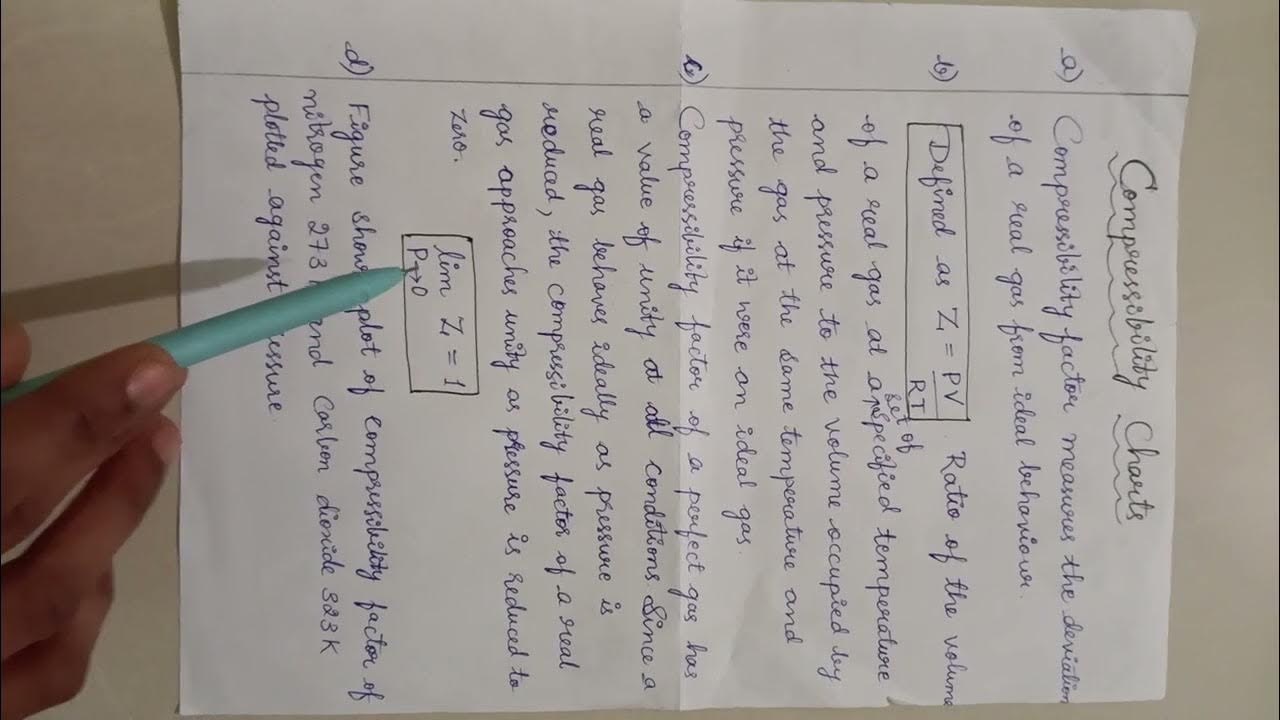 Compressibility Charts
a) Compressibility factor measures the deviation
of a real gas from ideal behaviour.
b) Defined as Z = PV/RT. Ratio of the volume
of a real gas at a set of specified temperature
and pressure to the volume occupied by
the gas at the same temperature and
pressure if it were an ideal gas.
c) Compressibility factor of a perfect gas has
a value of unity at all conditions. Since a
real gas behaves ideally as pressure is
reduced, the compressibility factor of a real
gas approaches unity as pressure is reduced to
zero.
lim Z = 1
P→0
d) Figure plot of compressibility factor of
nitrogen 273 Carbon dioxide 323K
plotted against